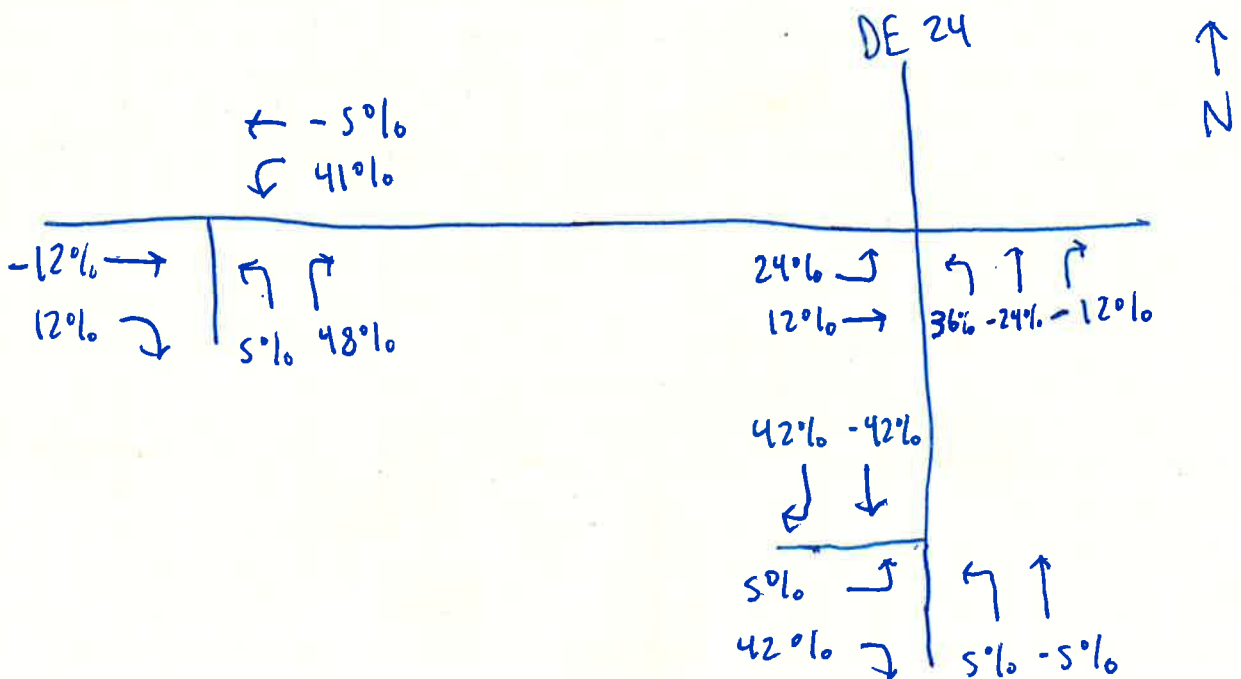 DE 24
N
← -5%
41%
-12% →
12%
5% 48%
24%
12% → 36% -24% -12%
42% -42%
5%
42%
5% -5%